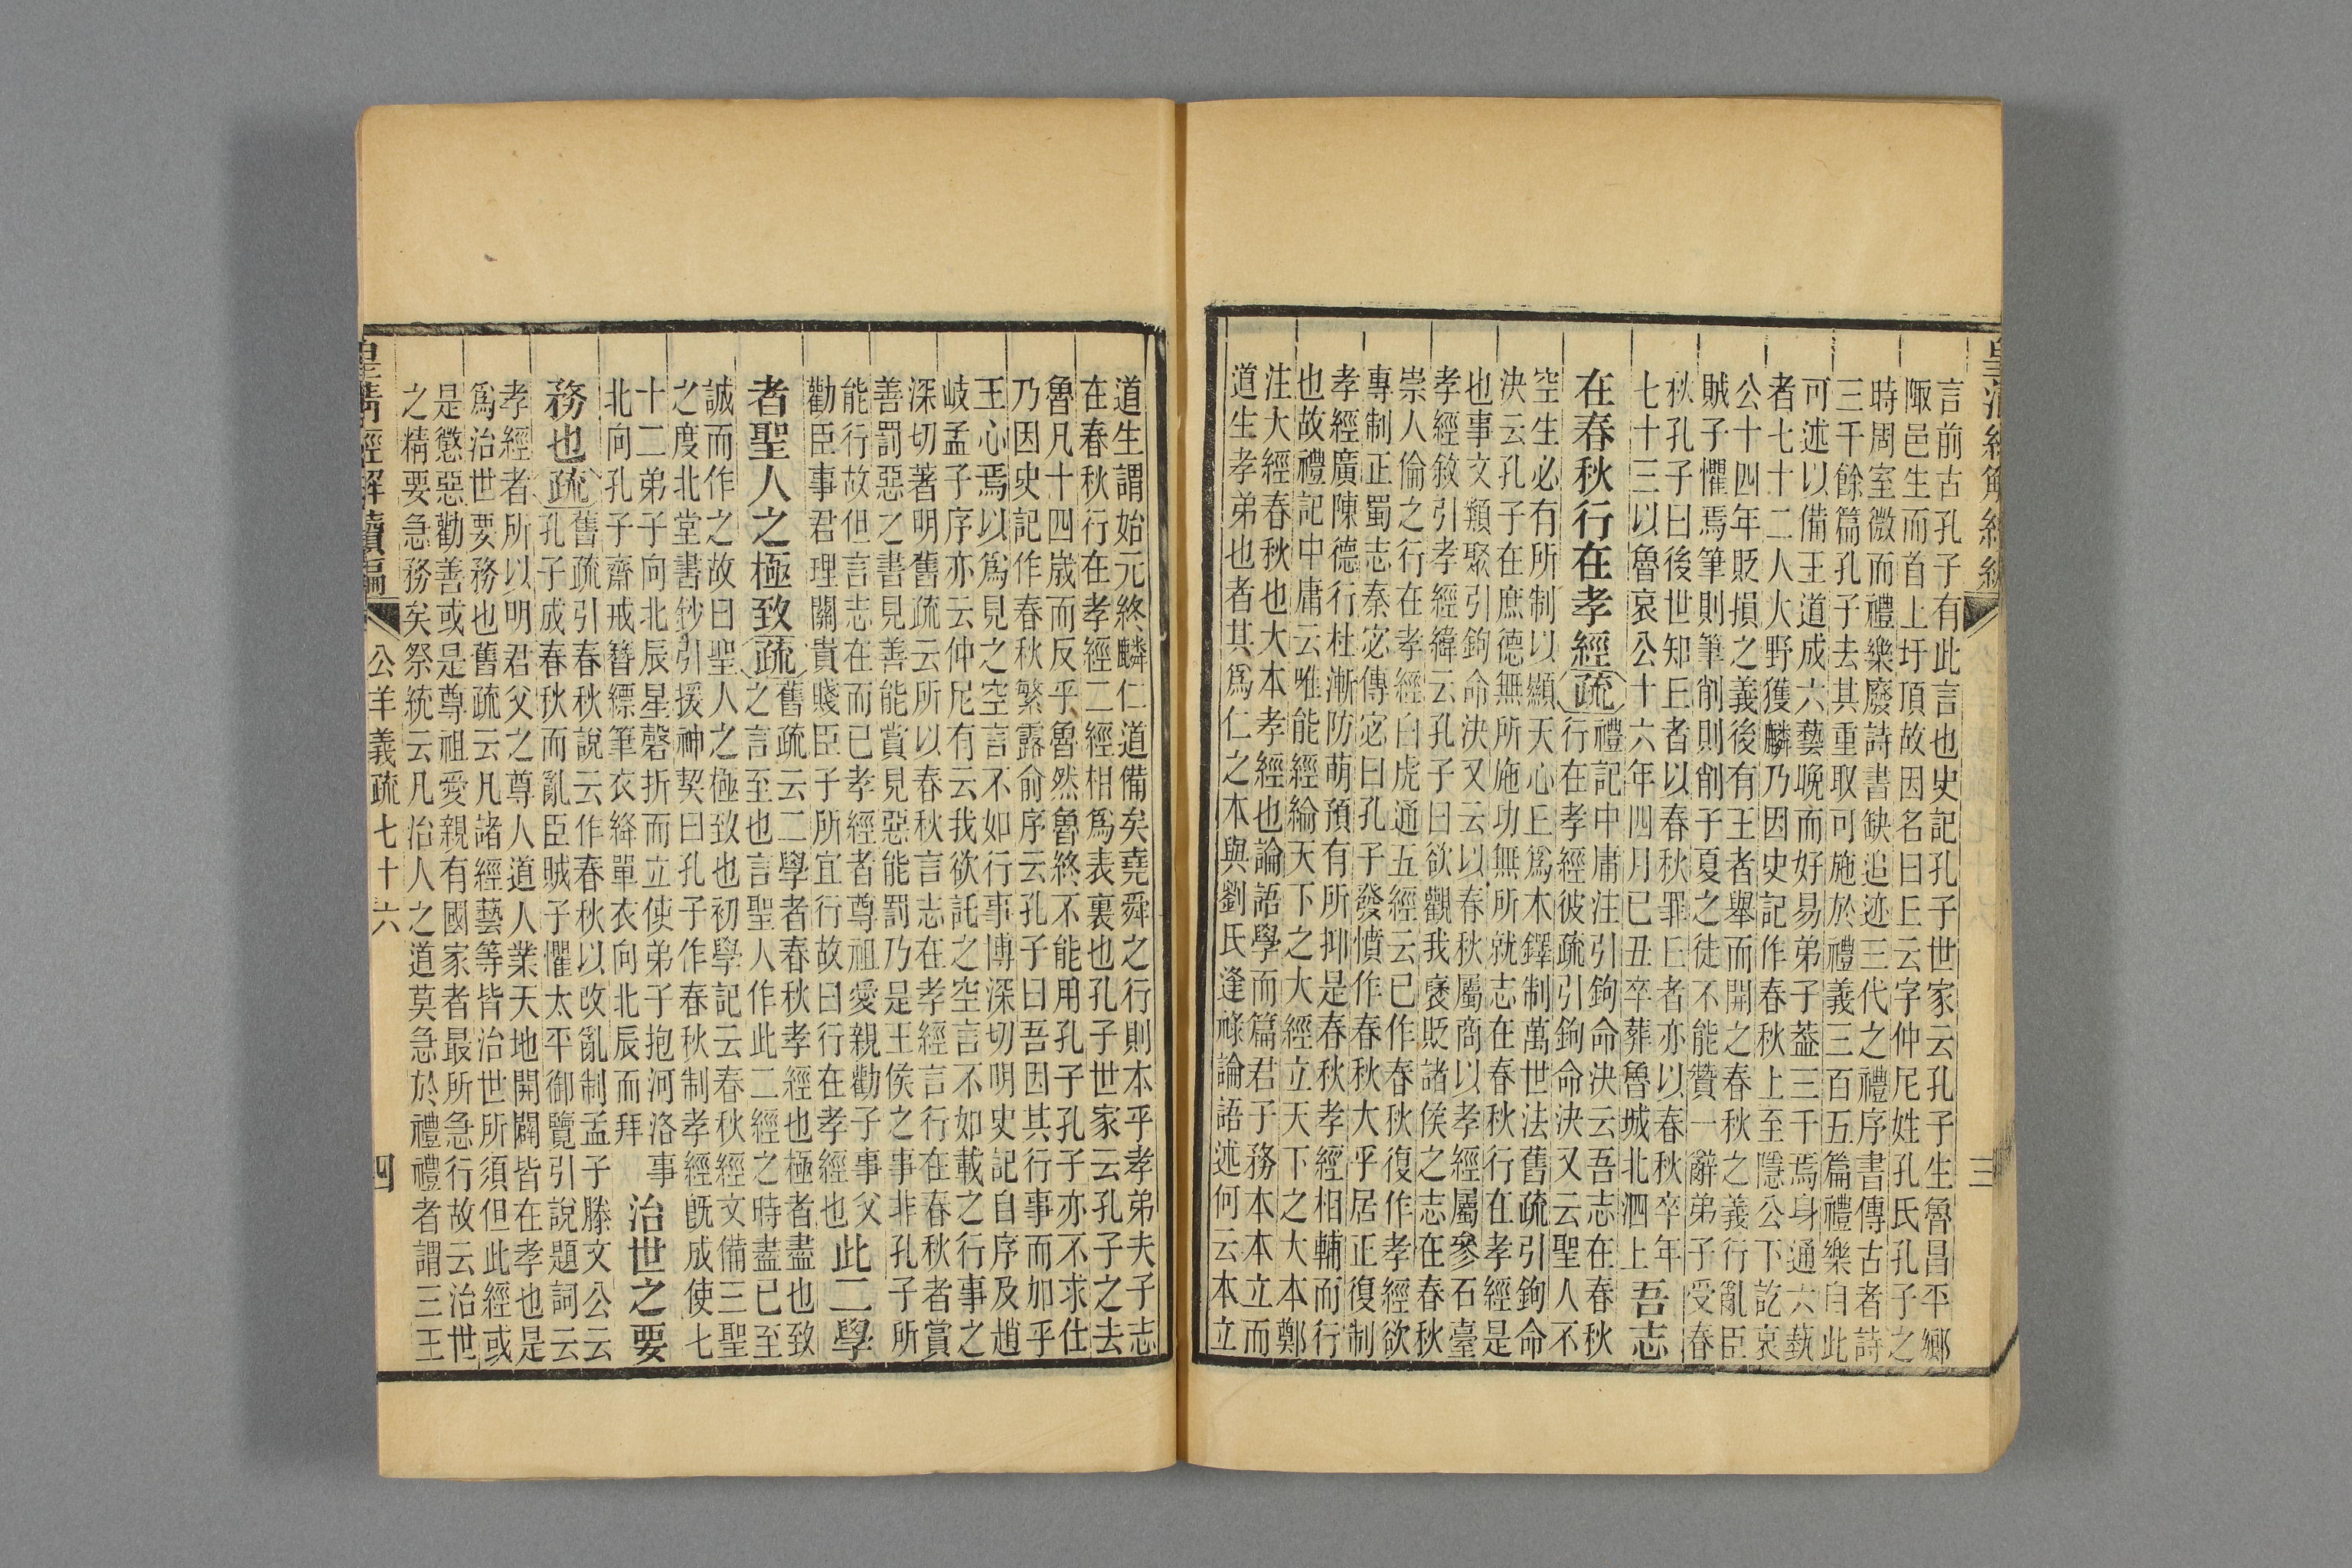 皇清經解續編
三
言前古孔子有此言也史記孔子世家云孔子生魯昌平鄉
陬邑生而首上圩頂故因名曰丘云字仲尼姓孔氏孔子之
時周室微而禮樂廢詩書缺追迹三代之禮序書傳古者詩
三千餘篇孔子去其重取可施於禮義三百五篇禮樂自此
可述以備王道成六藝晚而好易弟子葢三千焉身通六藝
者七十二人大野獲麟乃因史記作春秋上至隱公下訖哀
公十四年貶損之義後有王者舉而開之春秋之義行亂臣
賊子懼焉筆則筆削則削子夏之徒不能贊一辭弟子受春
秋孔子曰後世知丘者以春秋罪丘者亦以春秋卒年
七十三以魯哀公十六年四月已丑卒葬魯城北泗上
吾志
在春秋行在孝經疏
禮記中庸注引鉤命決云吾志在春秋
行在孝經彼疏引鉤命決又云聖人不
空生必有所制以顯天心丘爲木鐸制萬世法舊疏引鉤命
決云孔子在庶德無所施功無所就志在春秋行在孝經是
也事文類聚引鉤命決又云以春秋屬商以孝經屬參石臺
孝經敘引孝經緯云孔子曰欲觀我褒貶諸侯之志在春秋
崇人倫之行在孝經白虎通五經云已作春秋復作孝經欲
專制正蜀志秦宓傳宓曰孔子發憤作春秋大乎居正復制
孝經廣陳德行杜漸防萌預有所抑是春秋孝經相輔而行
也故禮記中庸云唯能經綸天下之大經立天下之大本鄭
注大經春秋也大本孝經也論語學而篇君子務本本立而
道生孝弟也者其爲仁之本與劉氏逢祿論語述何云本立
道生謂始元終麟仁道備矣堯舜之行則本乎孝弟夫子志
在春秋行在孝經二經相爲表裏也孔子世家云孔子之去
魯凡十四歲而反乎魯然魯終不能用孔子孔子亦不求仕
乃因史記作春秋繁露俞序云孔子曰吾因其行事而加乎
王心焉以爲見之空言不如行事博深切明史記自序及趙
岐孟子序亦云仲尼有云我欲託之空言不如載之行事之
深切著明舊疏云所以春秋言志在孝經言行在春秋者賞
善罰惡之書見善能賞見惡能罰乃是王侯之事非孔子所
能行故但言志在而已孝經者尊祖愛親勸子事父
勸臣事君理關貴賤臣子所宜行故曰行在孝經也
此二學
者聖人之極致疏
舊疏云二學者春秋孝經也極者盡也致
之言至也言聖人作此二經之時盡已至
誠而作之故曰聖人之極致也初學記云春秋經文備三聖
之度北堂書鈔引援神契曰孔子作春秋制孝經旣成使七
十二弟子向北辰星磬折而立使弟子抱河洛事
北向孔子齋戒簪縹筆衣絳單衣向北辰而拜
治世之要
務也疏
舊疏引春秋說云作春秋以改亂制孟子滕文公云
孔子成春秋而亂臣賊子懼太平御覽引說題詞云
孝經者所以明君父之尊人道人業天地開闢皆在孝也是
爲治世要務也舊疏云凡諸經藝等皆治世所須但此經或
是懲惡勸善或是尊祖愛親有國家者最所急行故云治世
之精要急務矣祭統云凡治人之道莫急於禮禮者謂三王
皇清經解續編
公羊義疏七十六
四